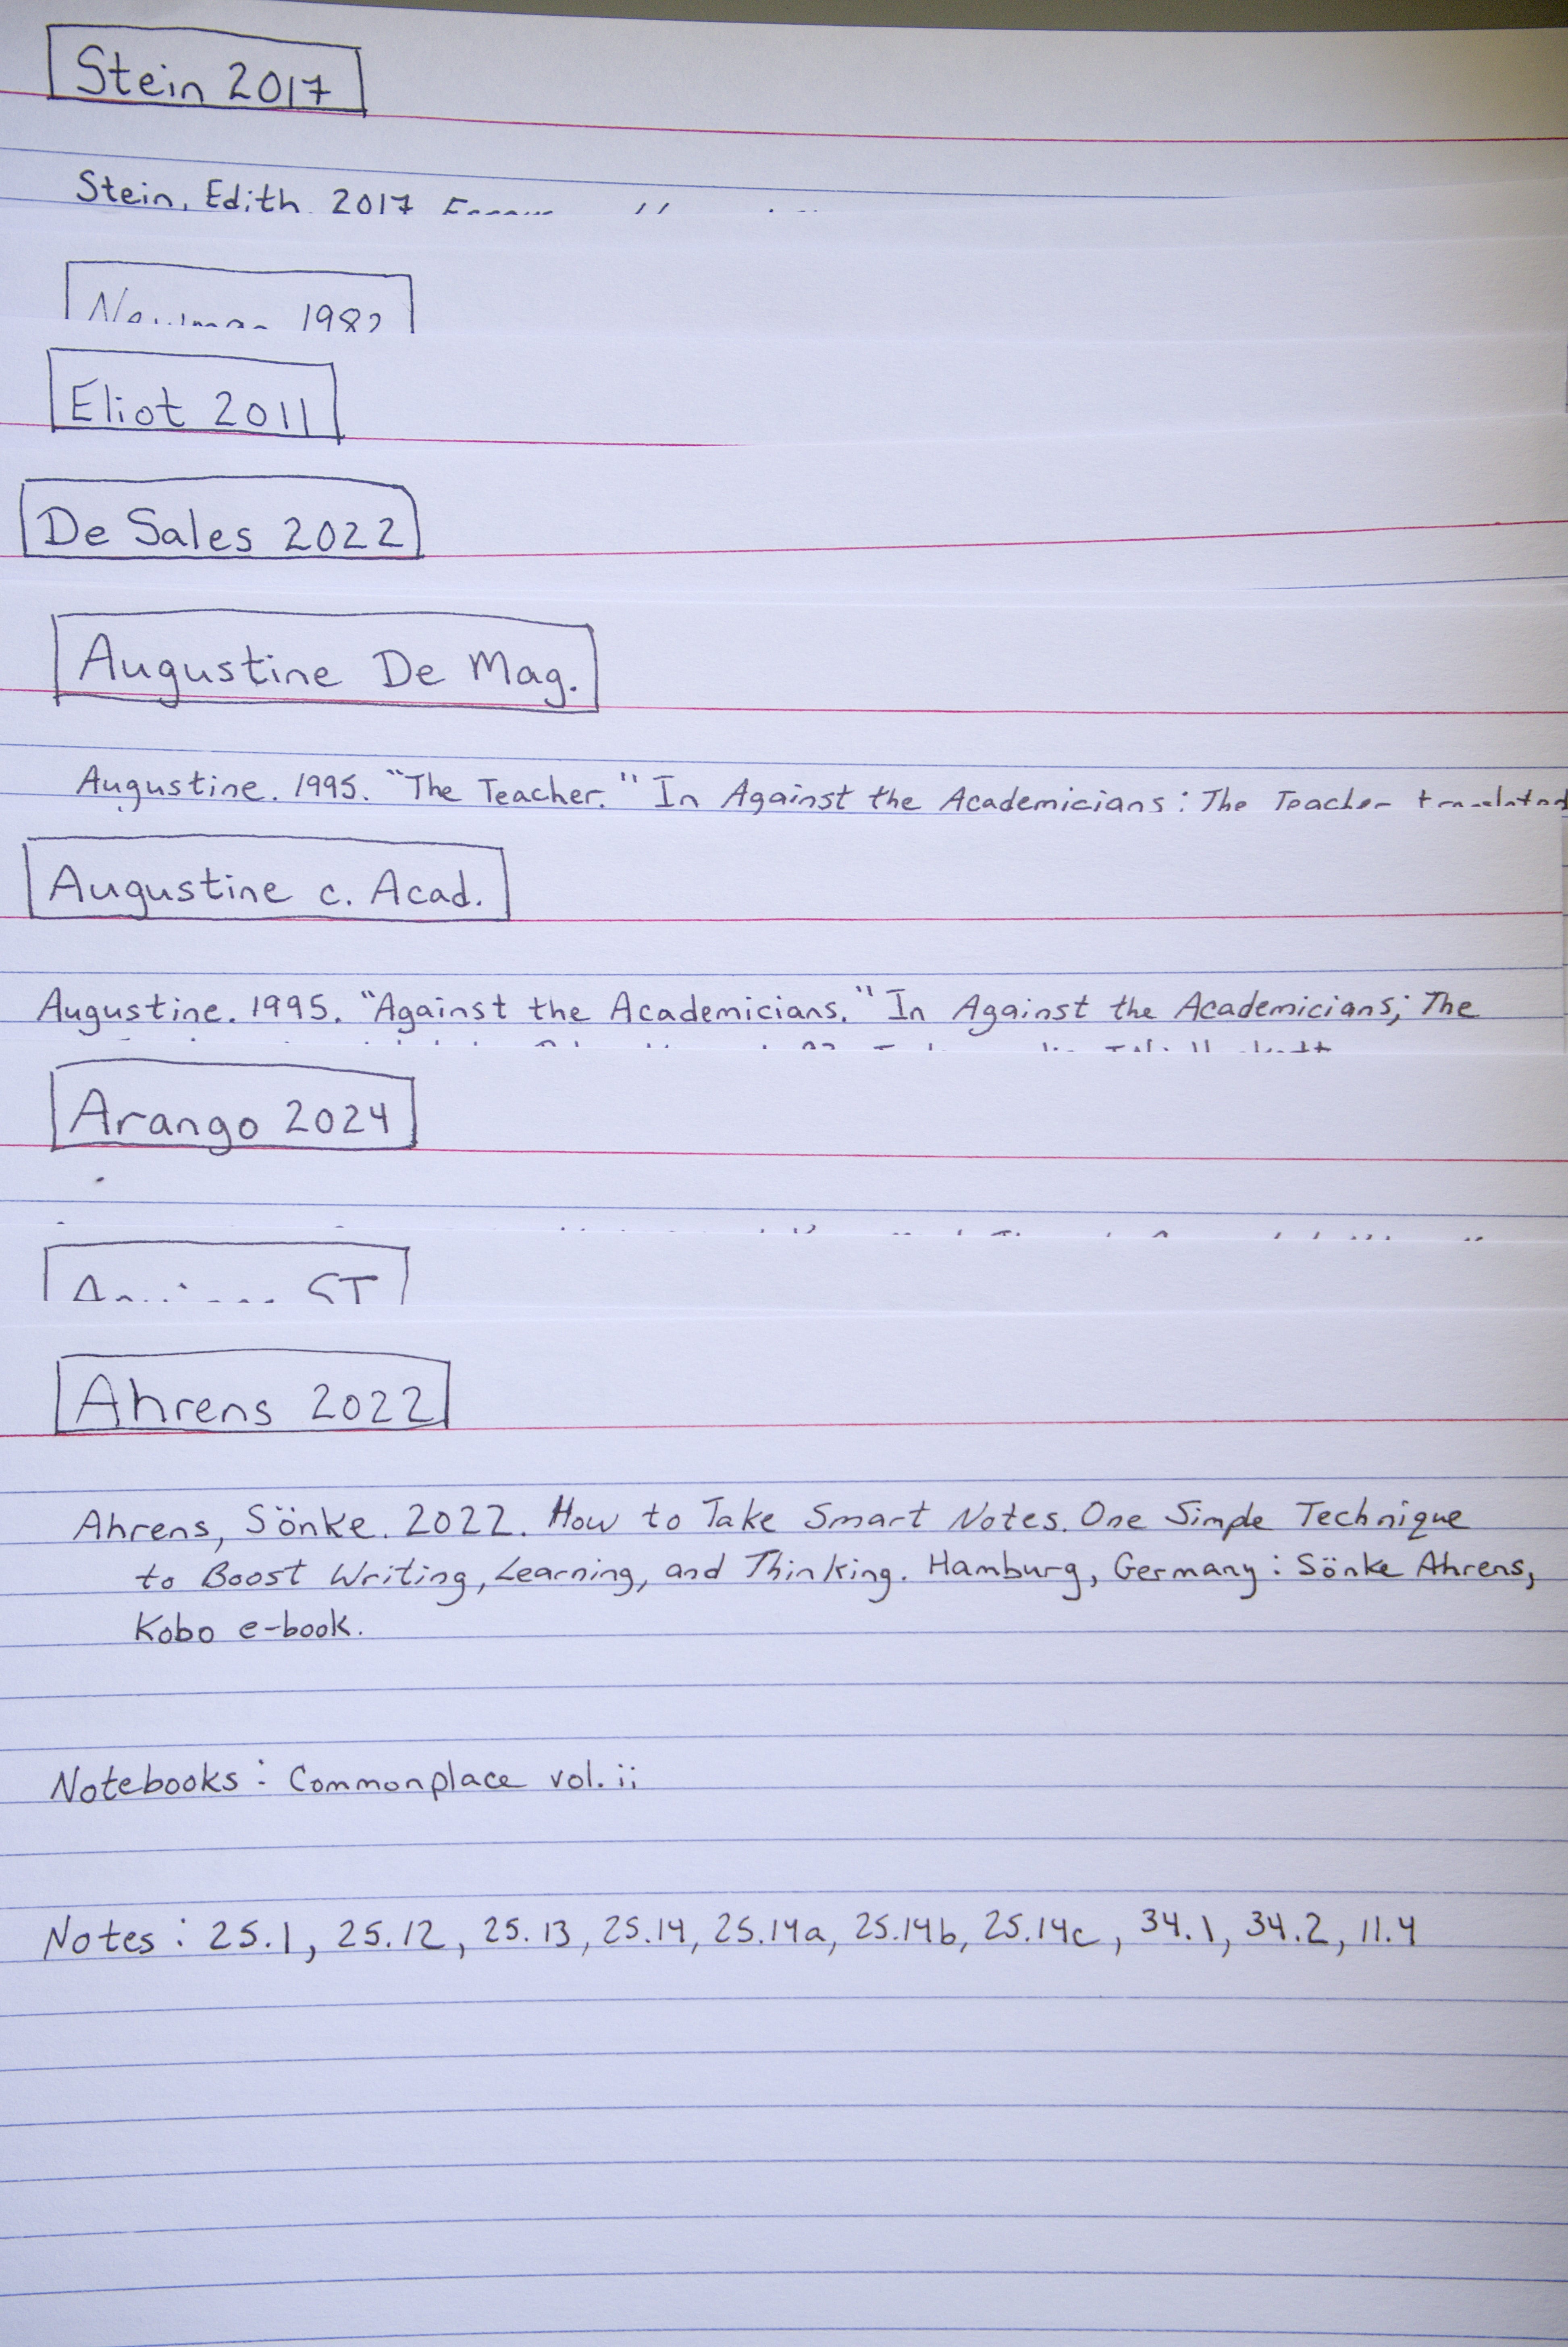 Stein 2017
Stein, Edith. 2017
1982
Eliot 2011
De Sales 2022
Augustine De Mag.
Augustine. 1995. "The Teacher." In Against the Academicians: The Teacher translated
Augustine c. Acad.
Augustine. 1995. "Against the Academicians." In Against the Academicians; The
Arango 2024
ST
Ahrens 2022
Ahrens, Sönke. 2022. How to Take Smart Notes. One Simple Technique
to Boost Writing, Learning, and Thinking. Hamburg, Germany: Sönke Ahrens,
Kobo e-book.
Notebooks: Commonplace vol. ii
Notes: 25.1, 25.12, 25.13, 25.14, 25.14a, 25.14b, 25.14c, 34.1, 34.2, 11.4